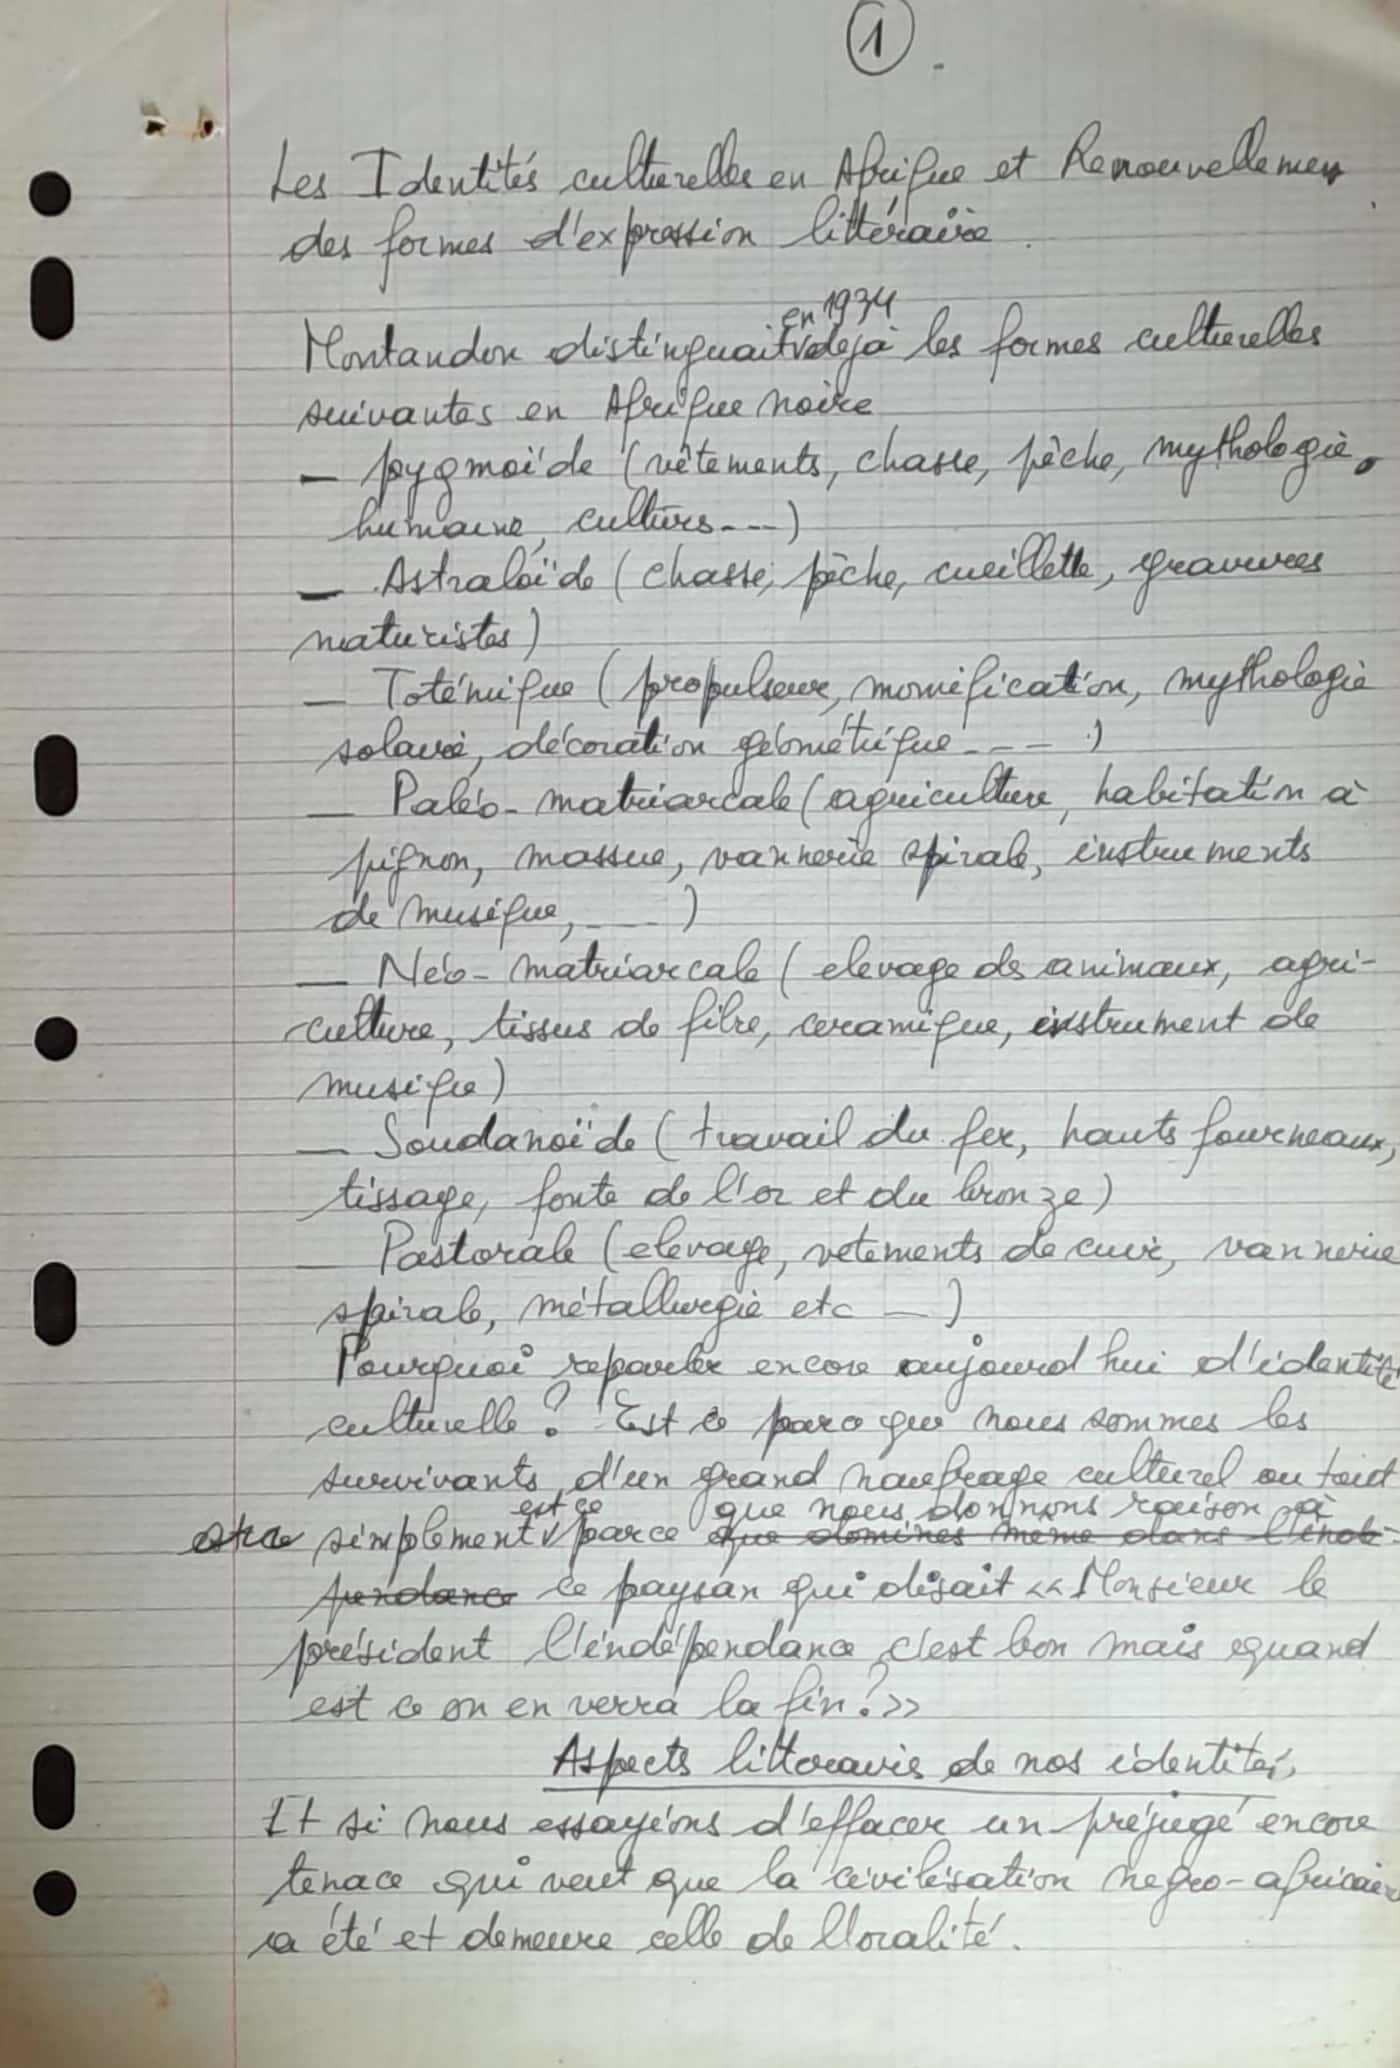 1
Les Identités culturelles en Afrique et Renouvellemen
des formes d'expression littéraire.
en 1934
Montandon distinguait déjà les formes culturelles
suivantes en Afrique noire
— pygmoïde (vêtements, chasse, pêche, mythologie
humaine, cultures---)
— Astraloïde (chasse, pêche, cueillette, gravures
naturistes)
— Toténique (propulseur, momification, mythologie
solaire, décoration géométrique----)
— Paléo-matriarcale (agriculture, habitation à
pignon, massue, vannerie spirale, instruments
de musique, ----)
— Néo-matriarcale (elevage des animaux, agri-
culture, tissus de fibre, ceramique, instrument de
musique)
— Soudanoïde (travail du fer, hauts fourneaux,
tissage, fonte de l'or et du bronze)
— Pastorale (elevage, vetements de cuir, vannerie
spirale, métallurgie etc —)
Pourquoi reparler encore aujourd hui d'identité
culturelle? Est ce parce que nous sommes les
survivants d'un grand naufrage culturel ou tout
est ce que nous donnons raison à
simplement parce que dominés même dans l'indé-
pendance ce paysan qui disait << Monsieur le
président l'indépendance c'est bon mais quand
est ce on en verra la fin?>>
Aspects littéraris de nos identités
Et si nous essayions d'effacer un préjugé encore
tenace qui veut que la civilisation négro-africain
a été et demeure celle de l'oralité.